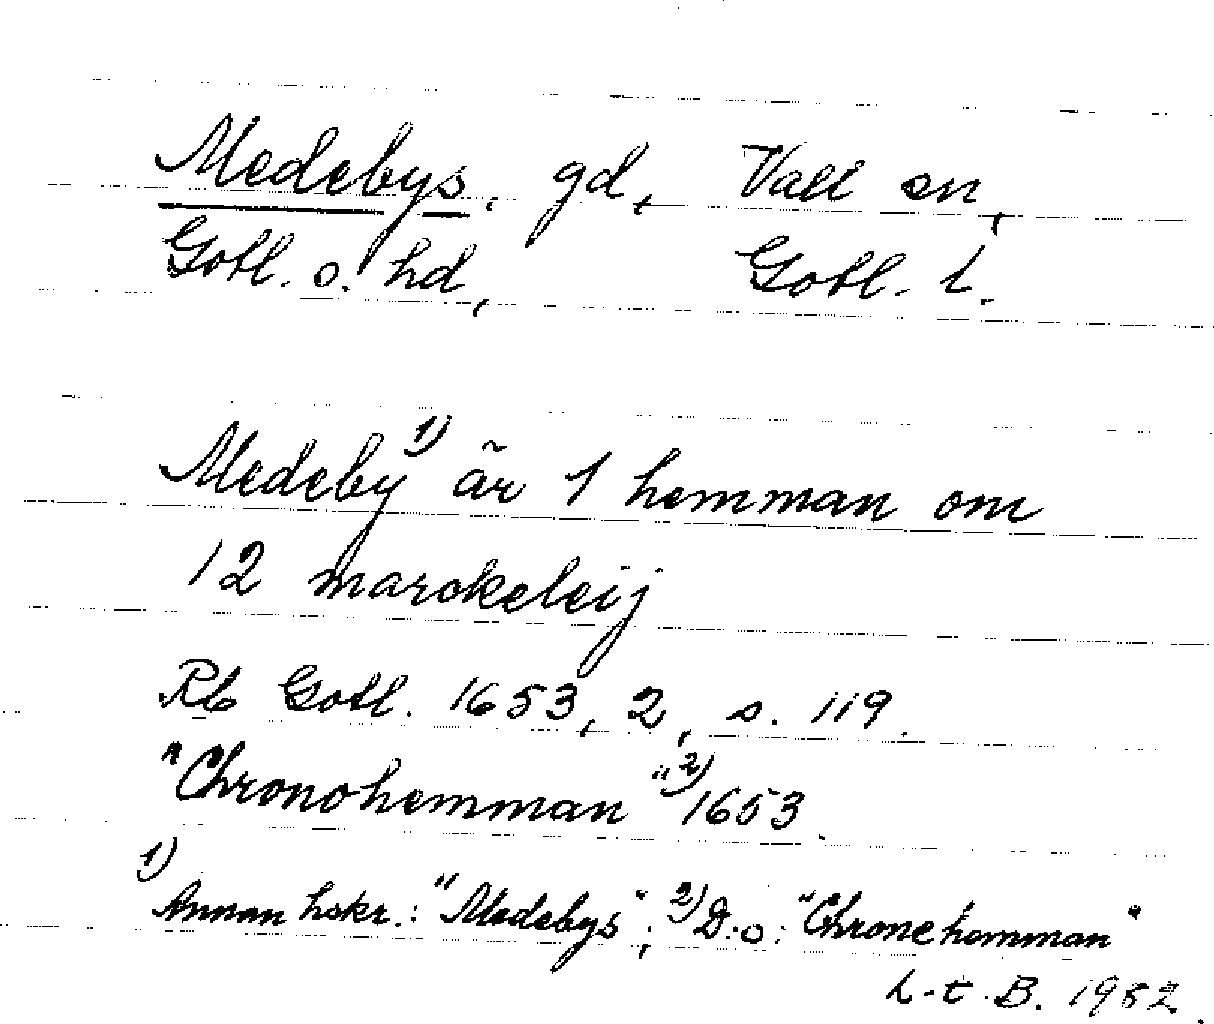 Medebys, gd, Vall sn,
Gotl. s. hd, Gotl. l.
Medeby 1) är 1 hemman om
12 marckeleij
Rb Gotl. 1653, 2, s. 119.
"Chronohemman" 2) 1653.
1) Annan hskr.: "Medebys"; 2) D:o: "Chronehemman"
L.t.B. 1952.